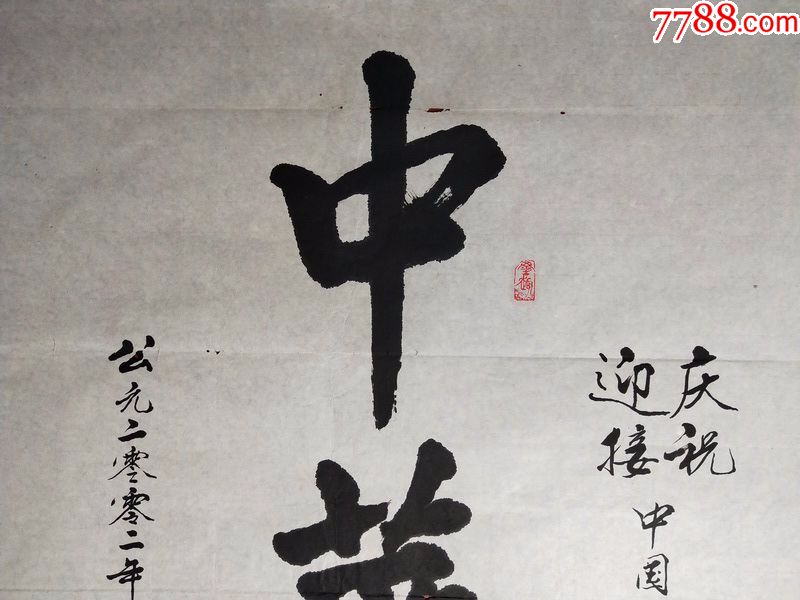 7788.com
庆祝
迎接
中国
中
公元二零零二年